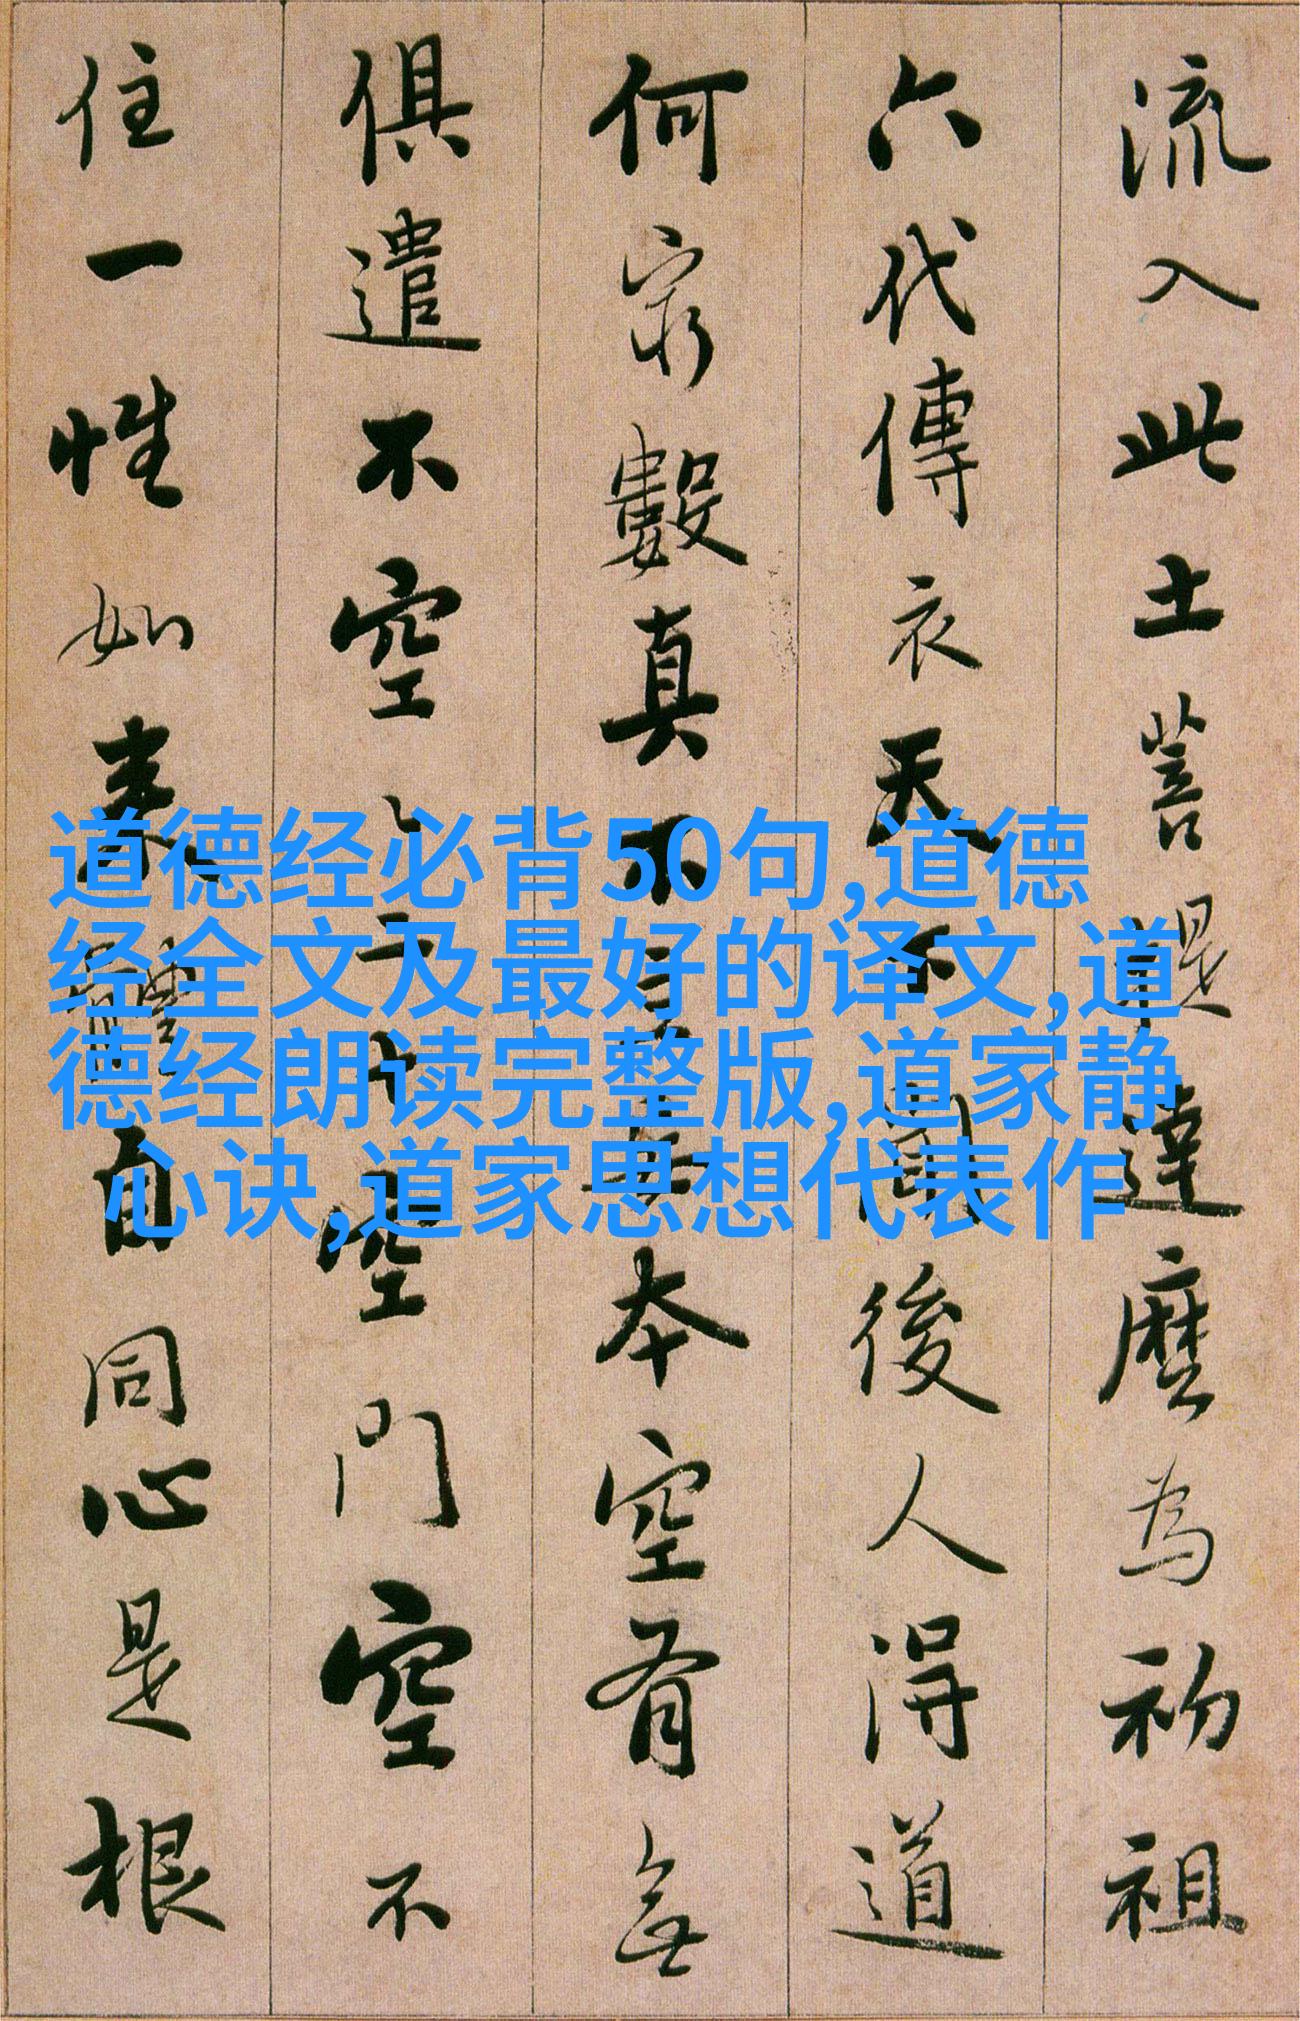 流入此土菩提達麼為初祖
六代傳衣天下聞後人得道
何窮數真不立妄本空有無
俱遣不空〻二十空門空不
住一性如來體自同心是根
道德经必背50句,道德
经全文及最好的译文,道
德经朗读完整版,道家静
心诀,道家思想代表作